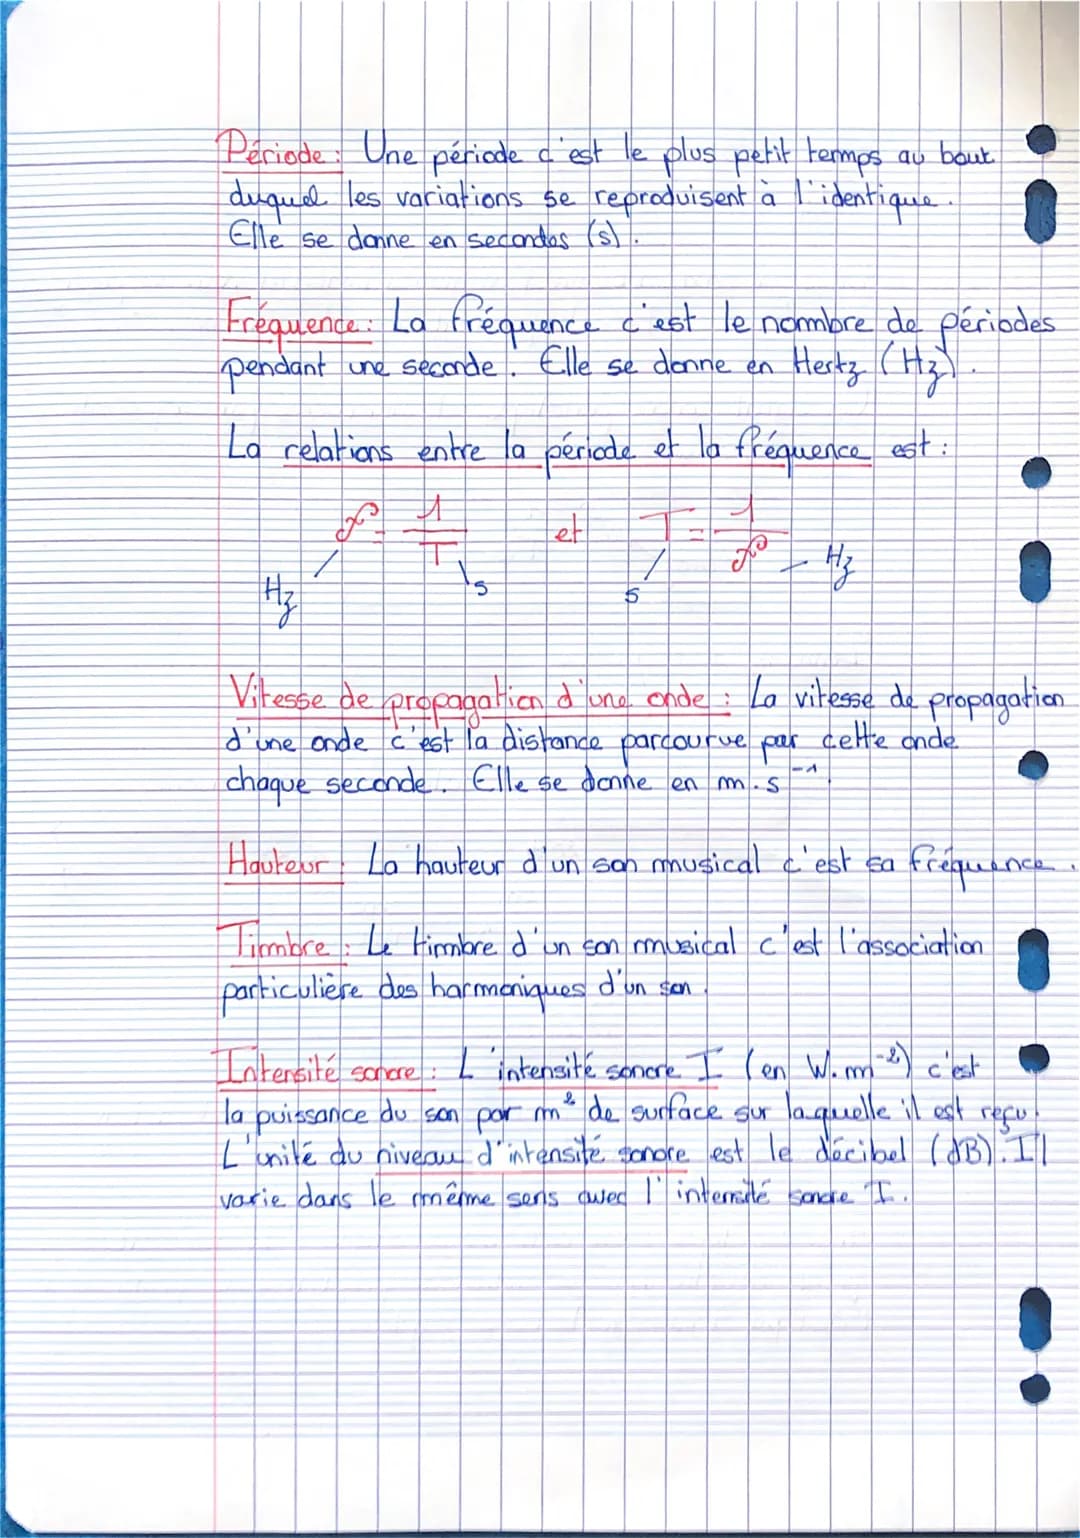 Période : Une période c'est le plus petit temps au bout
duquel les variations se reproduisent à l'identique.
Elle se donne en secondes (s).
Fréquence : La fréquence c'est le nombre de périodes
pendant une seconde. Elle se donne en Hertz (Hz).
La relations entre la période et la fréquence est :
f = 1/T et T = 1/f
Hz s s Hz
Vitesse de propagation d'une onde : La vitesse de propagation
d'une onde c'est la distance parcourue par cette onde
chaque seconde. Elle se donne en m.s⁻¹.
Hauteur : La hauteur d'un son musical c'est sa fréquence.
Timbre : Le timbre d'un son musical c'est l'association
particulière des harmoniques d'un son.
Intensité sonore : L'intensité sonore I (en W.m⁻²) c'est
la puissance du son par m² de surface sur laquelle il est reçu.
L'unité du niveau d'intensité sonore est le décibel (dB). Il
varie dans le même sens avec l'intensité sonore I.